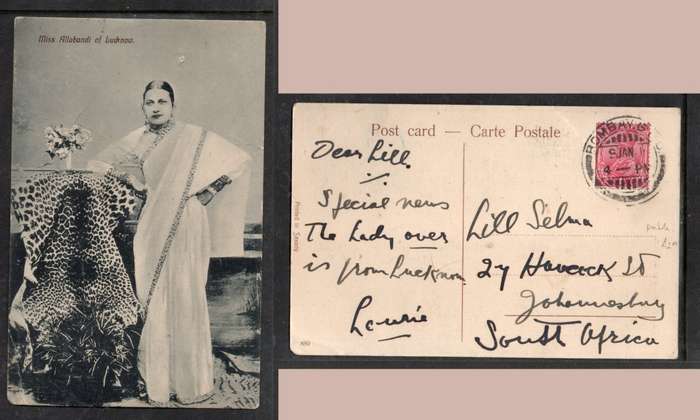 Miss Allabandi of Lucknow.
Post card — Carte Postale
BOMBAY G.
9 JAN
4 — PM
Dear Lill
Special news
The Lady over
is from Lucknow
Laurie
Lill Selma
27 Havelock St
Johannesburg
South Africa
Printed in Saxony